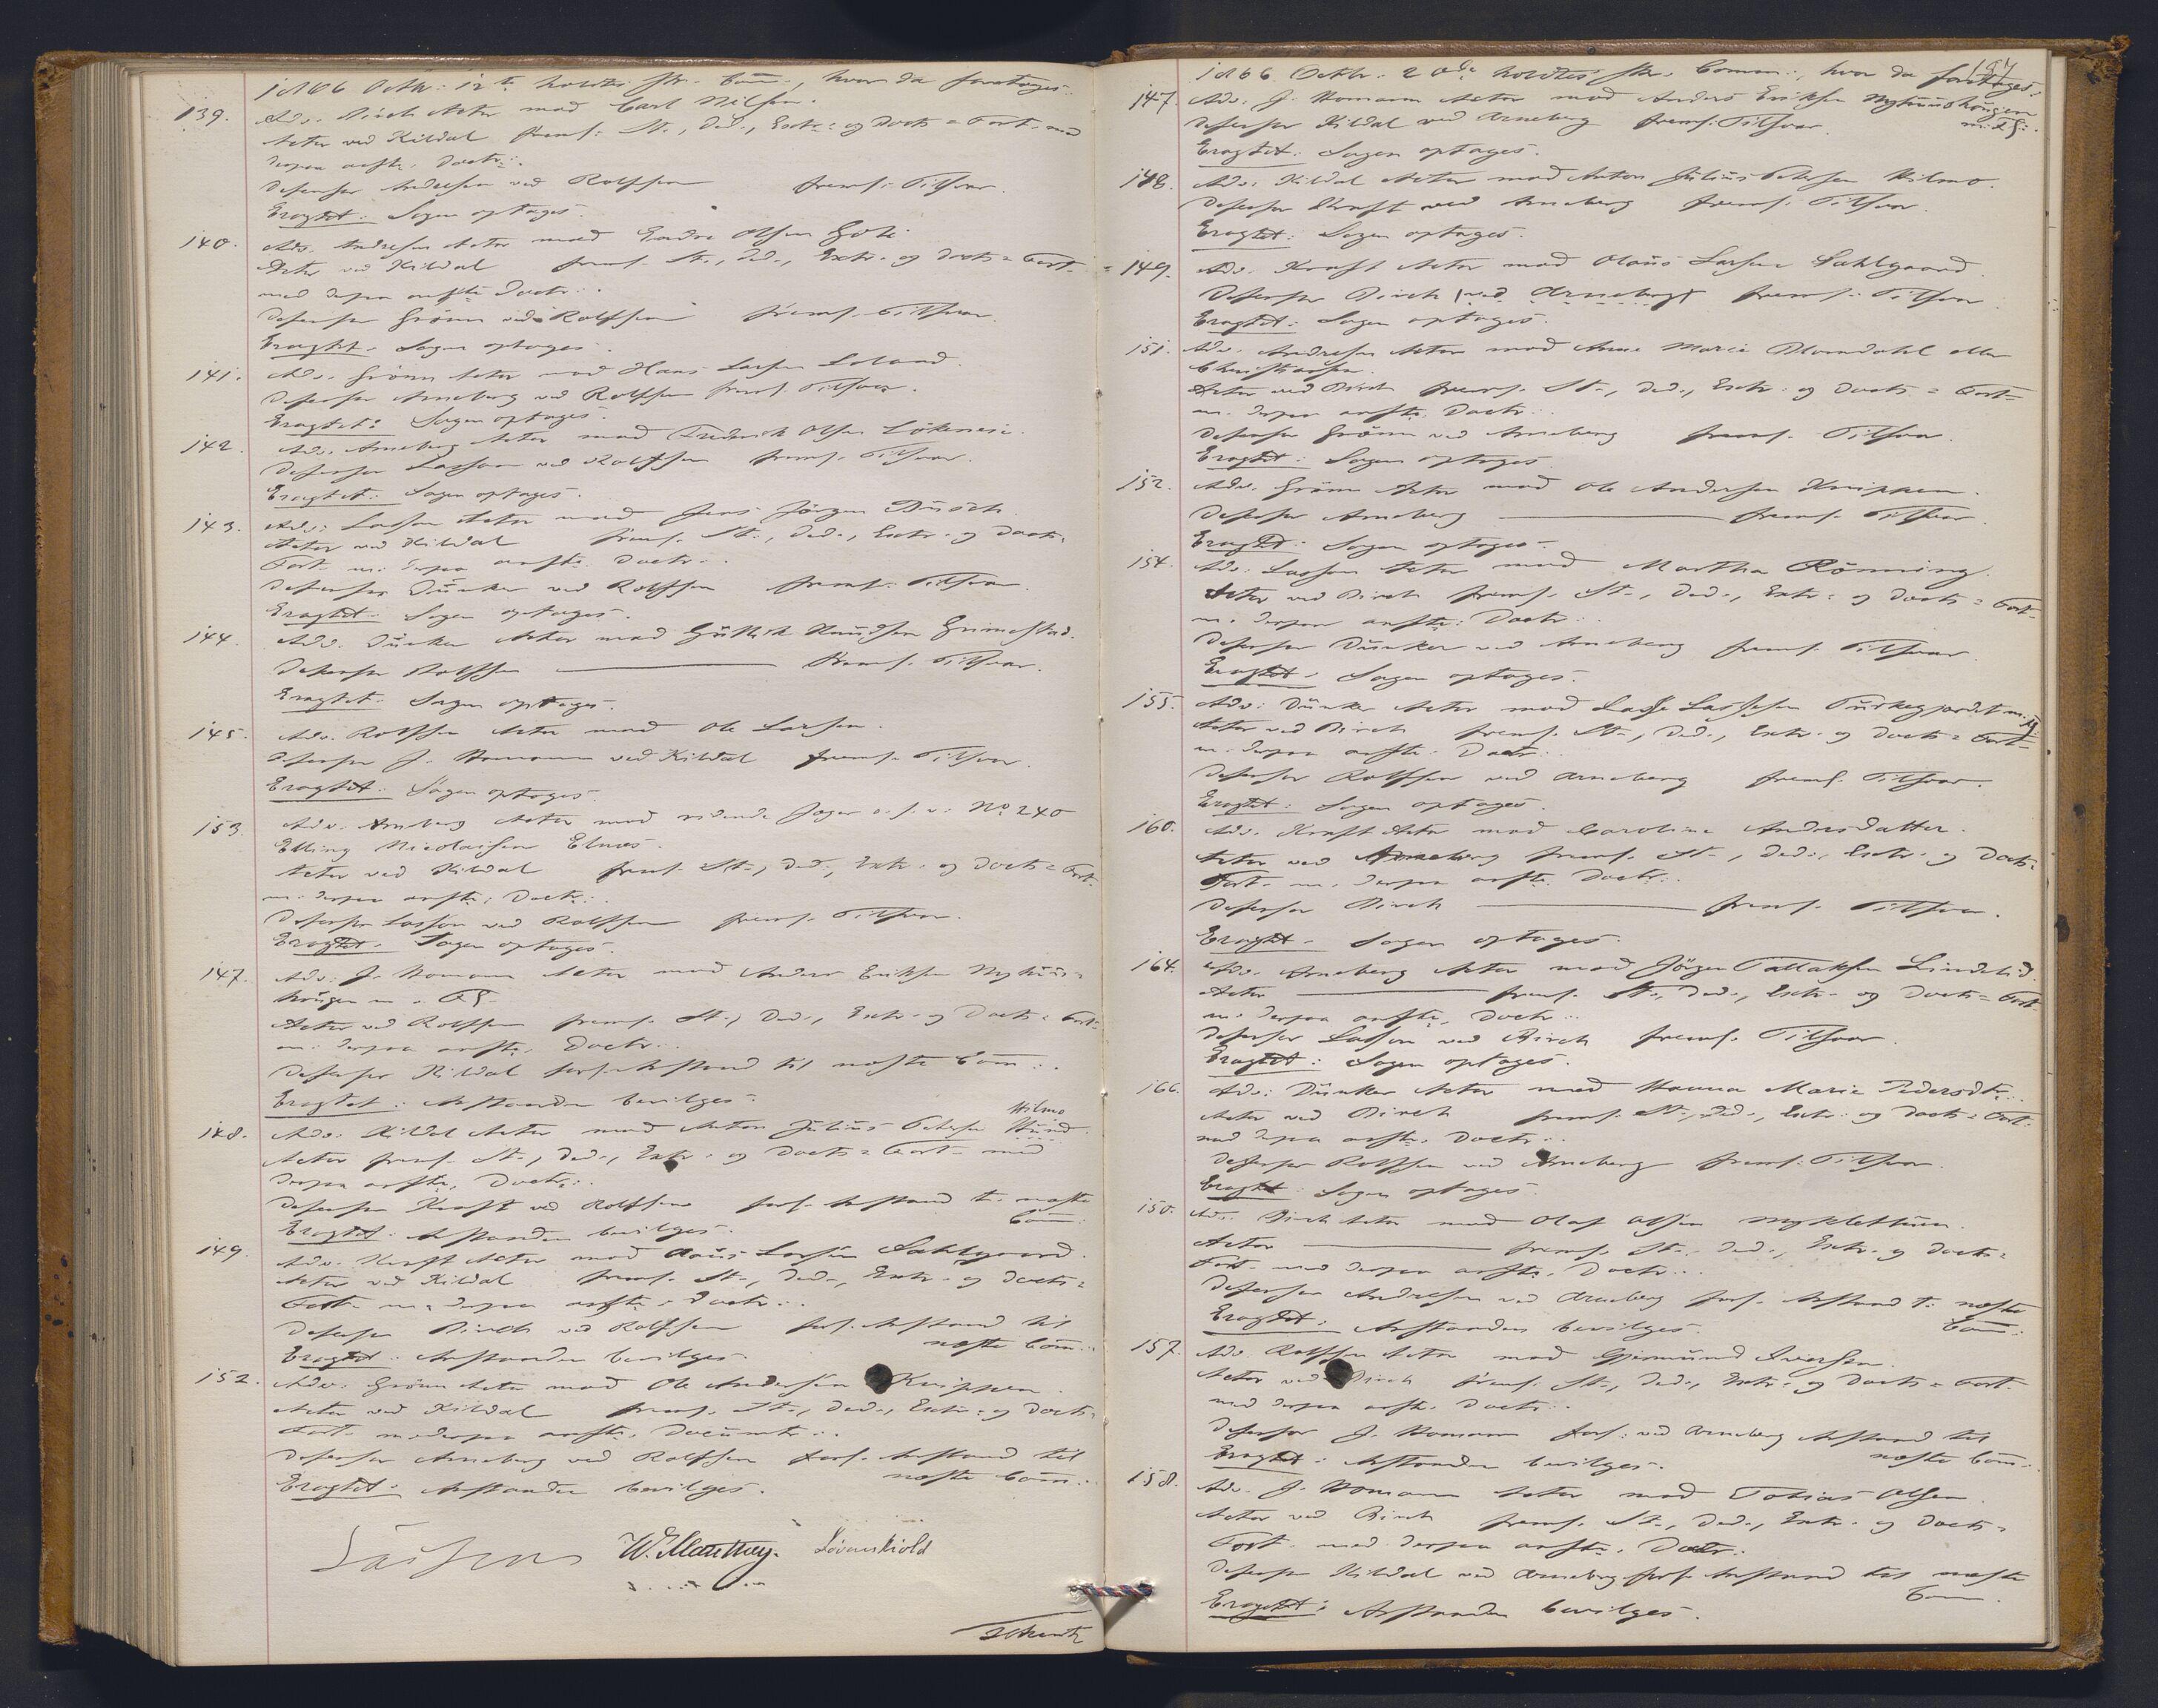 1866 Octbr: 12te holdtes skr. Com:, hvor da foretoges:
139. Adv. Birch Actor mod Carl Nilsen.
Actor ved Kildal freml: St., Ded., Extr: og Docts = Fort. med
derpaa anførte Doctr:
Defensor Andresen ved Rolfsen freml: Tilsvar.
Eragtet: Sagen optages.
140. Adv. Andresen Actor mod Endre Olsen Gote
Actor ved Kildal freml. St., Ded., Extr. og Docts = Fort.
med derpaa anførte Doctr:
Defensor Grönn ved Rolfsen freml. Tilsvar.
Eragtet: Sagen optages.
141. Adv. Grönn Actor mod Hans Larsen Loland.
Defensor Arneberg ved Rolfsen freml. Tilsvar.
Eragtet: Sagen optages.
142. Adv. Arneberg Actor mod Fredrik Olsen Lökeneie.
Defensor Lasson ved Rolfsen freml. Tilsvar.
Eragtet: Sagen optages.
143. Adv: Lasson Actor mod Jens Jörgen Busch.
Actor ved Kildal freml. St., Ded., Extr. og Docts =
Fort. m. derpaa anførte Doctr:
Defensor Dunker ved Rolfsen freml. Tilsvar.
Eragtet: Sagen optages.
144. Adv. Dunker Actor mod Guttorm Knudsen Grimestad.
Defensor Rolfsen freml. Tilsvar.
Eragtet: Sagen optages.
145. Adv. Rolfsen Actor mod Ole Larsen.
Defensor J. Homann ved Kildal freml. Tilsvar.
Eragtet: Sagen optages.
153. Adv. Arneberg Actor mod ridende Jæger No 240
Elling Nicolaisen Elnæs.
Actor ved Kildal freml. St., Ded., Extr. og Docts = Fort.
m. derpaa anførte Doctr:
Defensor Lasson ved Rolfsen freml. Tilsvar.
Eragtet: Sagen optages.
147. Adv: J. Homann Actor mod Anders Eriksen Nyhuus=
hougen m. Fl.
Actor ved Rolfsen freml. St., Ded., Extr. og Docts = Fort.
m. derpaa anførte Doctr:
Defensor Kildal forl. Anstand til næste Com:
Eragtet: Anstanden bevilges.
148. Adv: Kildal Actor mod Anton Julius Petersen Hund Hilmo
Actor freml. St., Ded., Extr. og Docts = Fort. med
derpaa anførte Doctr:
Defensor Kraft ved Rolfsen forl. Anstand t. næste
Com:
Eragtet: Anstanden bevilges.
149. Adv. Kraft Actor mod Olaus Larsen Sahlgaard.
Actor ved Kildal freml. St., Ded., Extr. og Docts =
Fort. m. derpaa anførte Doctr:
Defensor Birch ved Rolfsen forl. Anstand til
næste Com:
Eragtet: Anstanden bevilges.
152. Adv. Grönn Actor mod Ole Andersen Knippen.
Actor ved Kildal freml. St., Ded., Extr. og Docts =
Fort. m. derpaa anførte Documtr:
Defensor Arneberg ved Rolfsen forl. Anstand til
næste Com:
Eragtet: Anstanden bevilges.
W. Manthey. Lövenskiold
197
1866 Octbr. 20de holdtes skr. Comm:, hvor da foretoges:
147. Adv: J. Homann Actor mod Anders Eriksen Nyhuushougen
m. Fl:
Defensor Kildal ved Arneberg freml. Tilsvar.
Eragtet: Sagen optages.
148. Adv: Kildal Actor mod Anton Julius Petersen Hilmo.
Defensor Kraft ved Arneberg freml. Tilsvar.
Eragtet: Sagen optages.
149. Adv. Kraft Actor mod Olaus Larsen Sahlgaard.
Defensor Birch (ved Arneberg) freml: Tilsvar
Eragtet: Sagen optages.
151. Adv. Andresen Actor mod Anne Marie Blomdahl eller
Christiansen.
Actor ved Birch freml. St., Ded., Extr: og Docts = Fort.
m. derpaa anførte Doctr:
Defensor Grönn ved Arneberg freml. Tilsvar.
Eragtet: Sagen optages.
152. Adv. Grönn Actor mod Ole Andersen Knippen.
Defensor Arneberg freml. Tilsvar.
Eragtet: Sagen optages.
154. Adv: Lasson Actor mod Martha Rönning.
Actor ved Birch freml. St., Ded., Extr: og Docts = Fort.
m. derpaa anførte Doctr:
Defensor Dunker ved Arneberg freml. Tilsvar.
Eragtet: Sagen optages.
155. Adv: Dunker Actor mod Lasse Lassesen Furkegjordet m. Fl.
Actor ved Birch freml. St., Ded., Extr. og Docts = Fort.
m. derpaa anførte Doctr:
Defensor Rolfsen ved Arneberg freml. Tilsvar.
Eragtet: Sagen optages.
160. Adv. Kraft Actor mod Caroline Andersdatter.
Actor ved Arneberg freml. St., Ded., Extr. og Docts =
Fort. m. derpaa anførte Doctr:
Defensor Birch freml. Tilsvar.
Eragtet: Sagen optages.
164. Adv. Arneberg Actor mod Jörgen Tallaksen Lindelid.
Actor freml. St., Ded., Extr. og Docts = Fort.
m. derpaa anførte Doctr:
Defensor Lasson ved Birch freml. Tilsvar.
Eragtet: Sagen optages.
166. Adv: Dunker Actor mod Hanna Marie Pedersdtr.
Actor ved Birch freml. St., Ded., Extr. og Docts = Fort.
med derpaa anførte Doctr:
Defensor Rolfsen ved Arneberg freml: Tilsvar.
Eragtet: Sagen optages.
150. Adv. Birch Actor mod Olaf Olsen Myklethuen.
Actor freml. St., Ded., Extr. og Docts =
Fort. med derpaa anførte Doctr:
Defensor Andresen ved Arneberg forl. Anstand t. næste
Com:
Eragtet: Anstanden bevilges.
157. Adv. Rolfsen Actor mod Gjermund Iversen.
Actor ved Birch freml. St., Ded., Extr. og Docts = Fort.
med derpaa anførte Doctr:
Defensor J. Homann forl: ved Arneberg Anstand til
næste Com:
Eragtet: Anstanden bevilges.
158. Adv. J. Homann Actor mod Tobias Olsen.
Actor ved Birch freml. St., Ded., Extr. og Docts =
Fort. med derpaa anførte Doctr:
Defensor Kildal ved Arneberg forl. Anstand til næste
Com.
Eragtet: Anstanden bevilges.